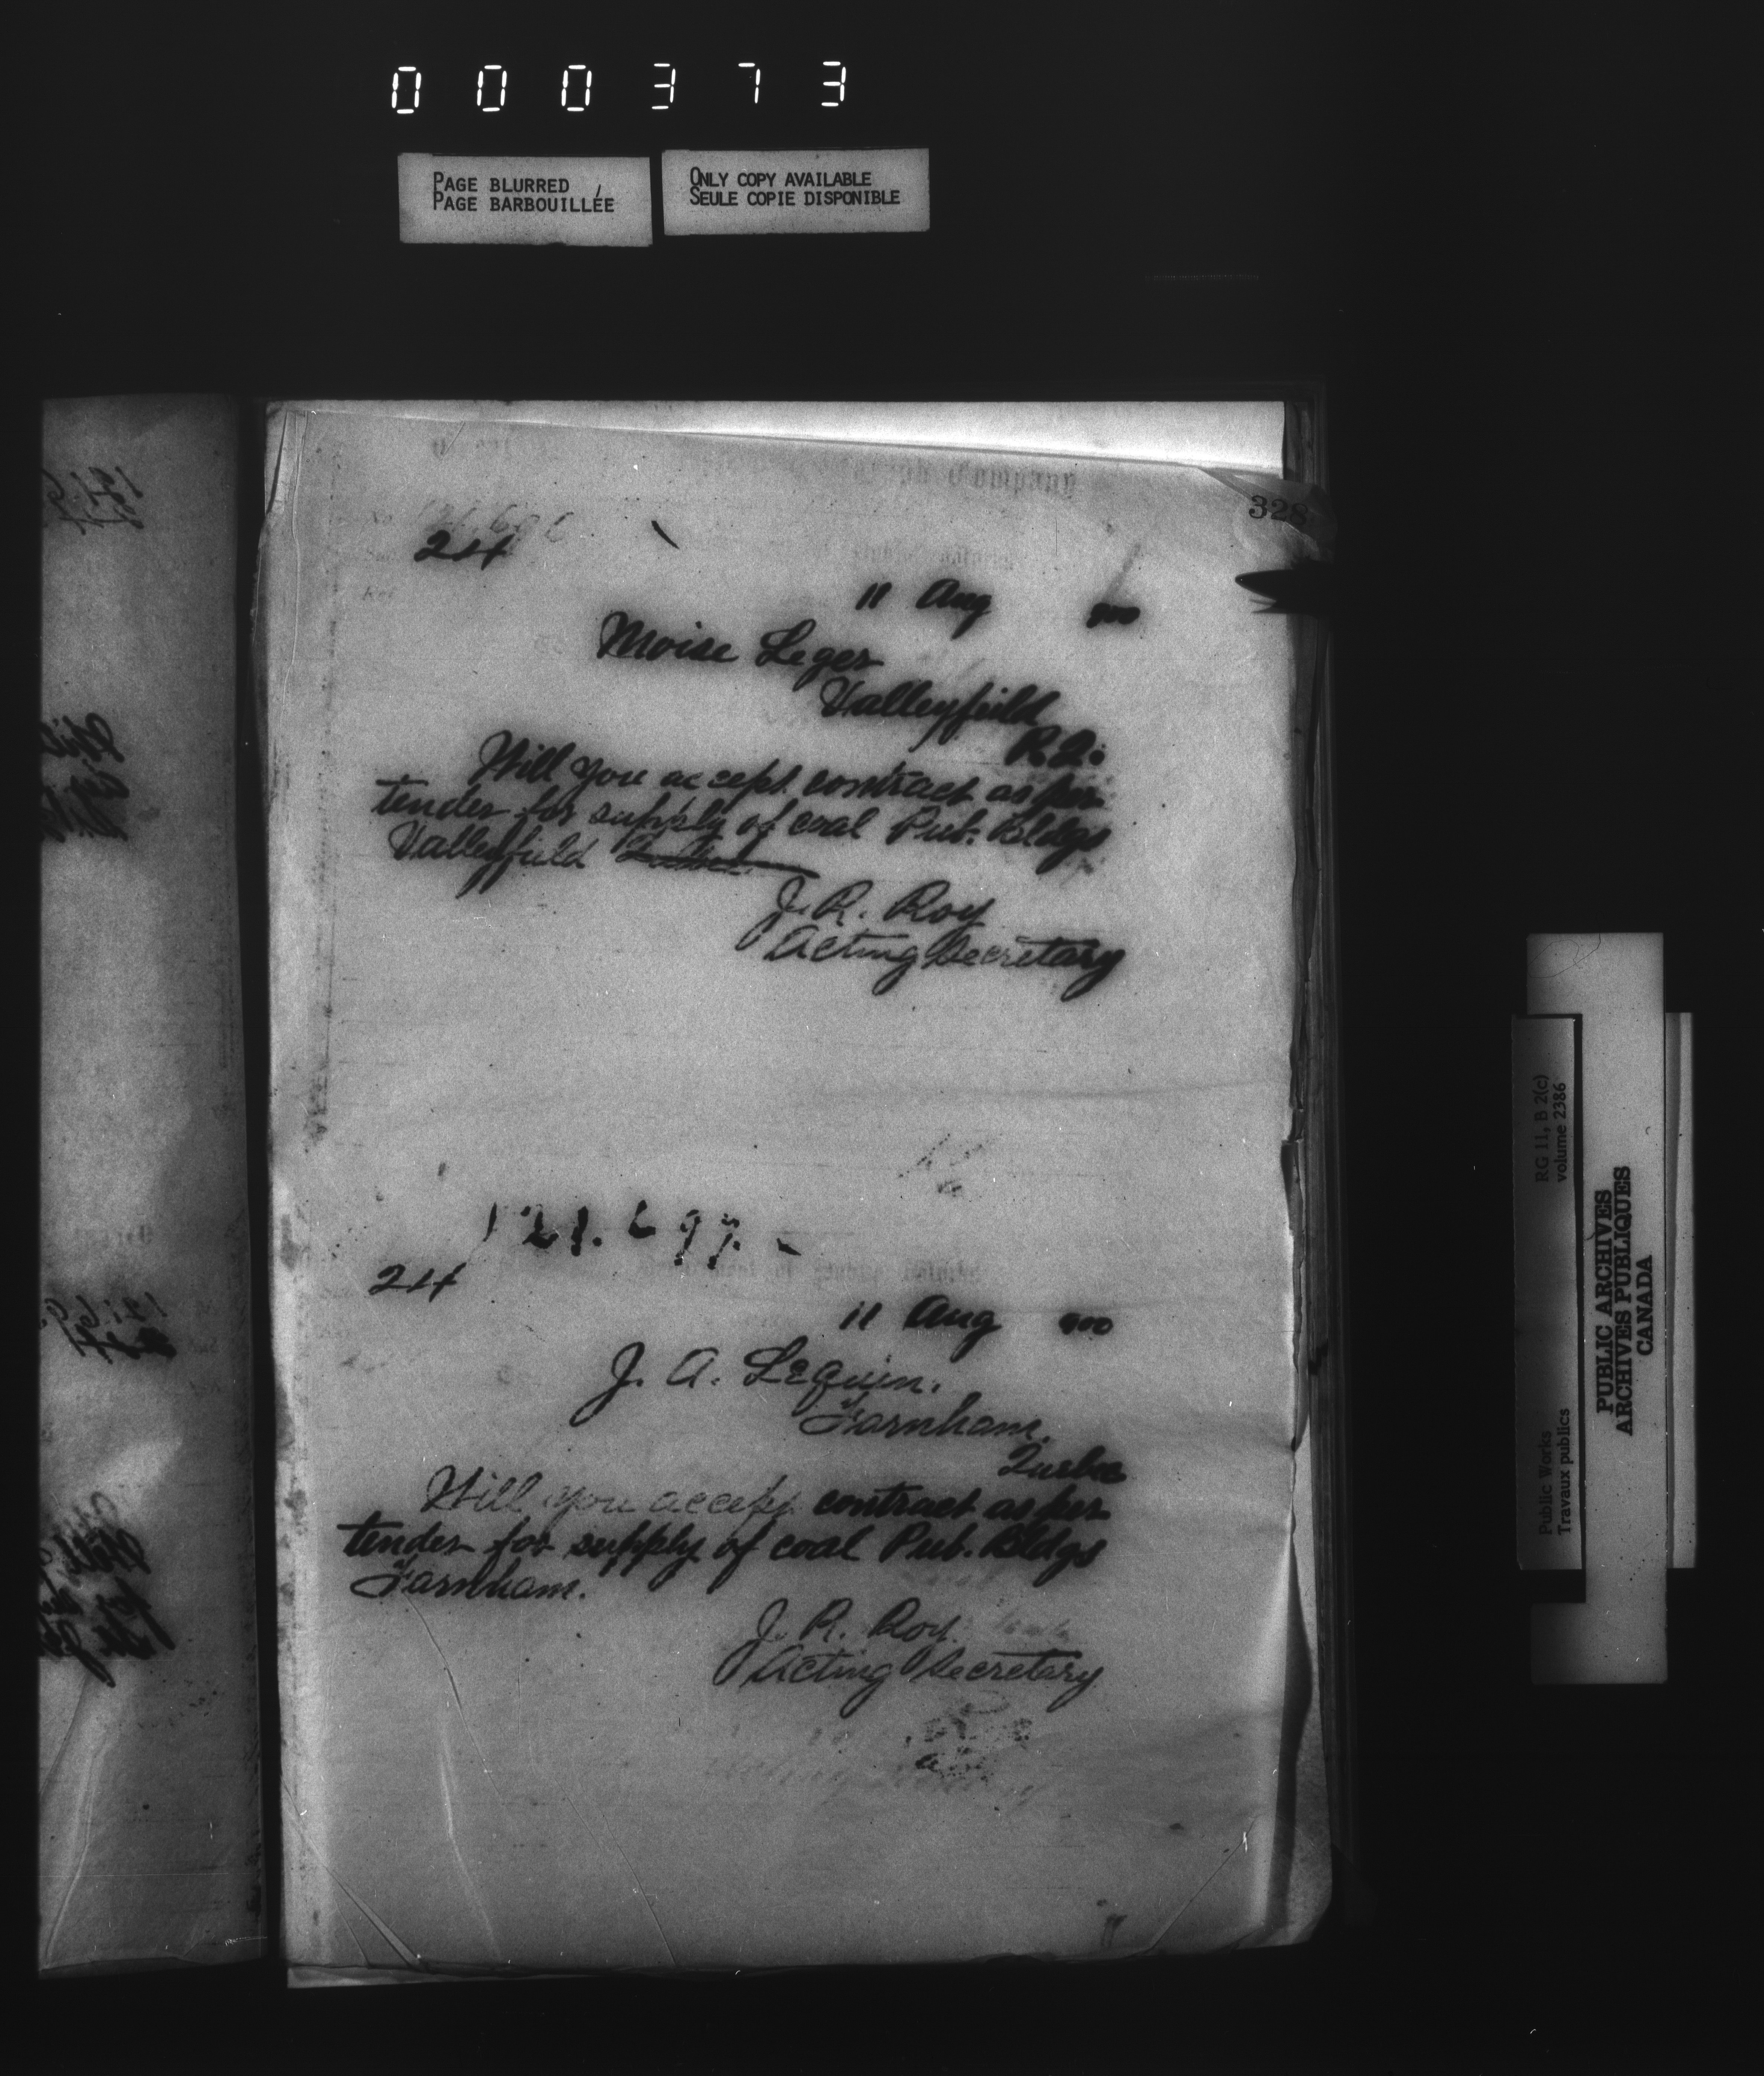 000373
PAGE BLURRED
PAGE BARBOUILLÉE
ONLY COPY AVAILABLE
SEULE COPIE DISPONIBLE
Company
328
214
11 Aug 900
Moise Leger
Valleyfield
P.Q.
Will you accept contract as per
tender for supply of coal Pub. Bldgs
Valleyfield
J. R. Roy
Acting Secretary
121.697.
214
11 Aug 900
J. A. Lequin.
Farnham.
Quebec
Will you accept contract as per
tender for supply of coal Pub. Bldgs
Farnham.
J. R. Roy.
Acting Secretary
Public Works
Travaux publics
RG 11, B 2(c)
volume 2386
PUBLIC ARCHIVES
ARCHIVES PUBLIQUES
CANADA